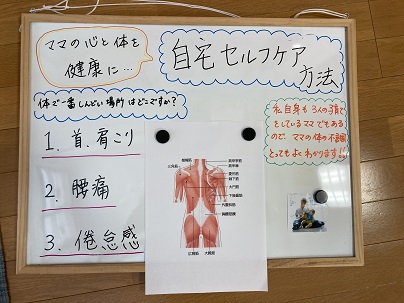 ママの心と体を
健康に…
自宅セルフケア
方法
体で一番しんどい場所はどこですか？
1. 首、肩こり
2. 腰痛
3. 倦怠感
私自身も3人の子育て
をしているママでもある
ので、ママの体の不調
とってもよくわかります!!
僧帽筋
三角筋
大円筋
広背筋
大殿筋